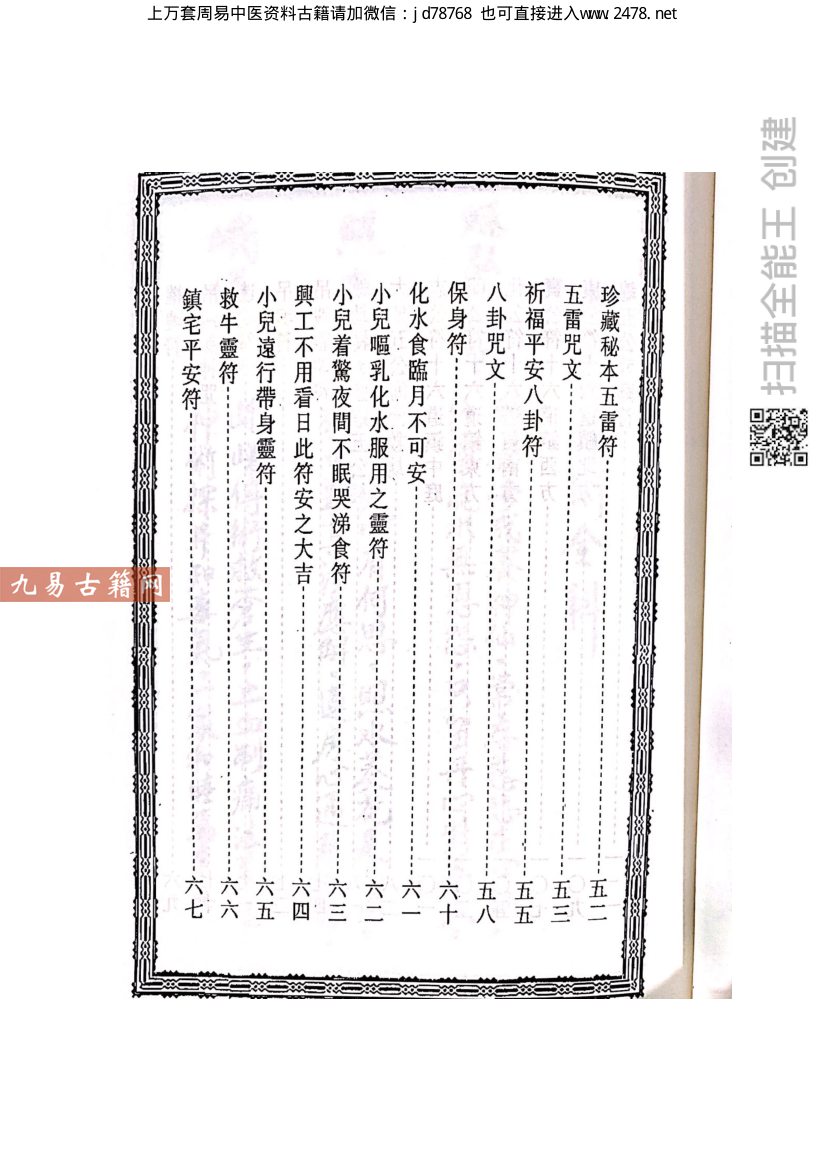 上万套周易中医资料古籍请加微信：jd78768 也可直接进入www.2478.net
珍藏秘本五雷符 五二
五雷咒文 五三
祈福平安八卦符 五五
八卦咒文 五八
保身符 六十
化水食臨月不可安 六一
小兒嘔乳化水服用之靈符 六二
小兒着驚夜間不眠哭涕食符 六三
興工不用看日此符安之大吉 六四
小兒遠行帶身靈符 六五
救牛靈符 六六
鎮宅平安符 六七
扫描全能王 创建
九易古籍网